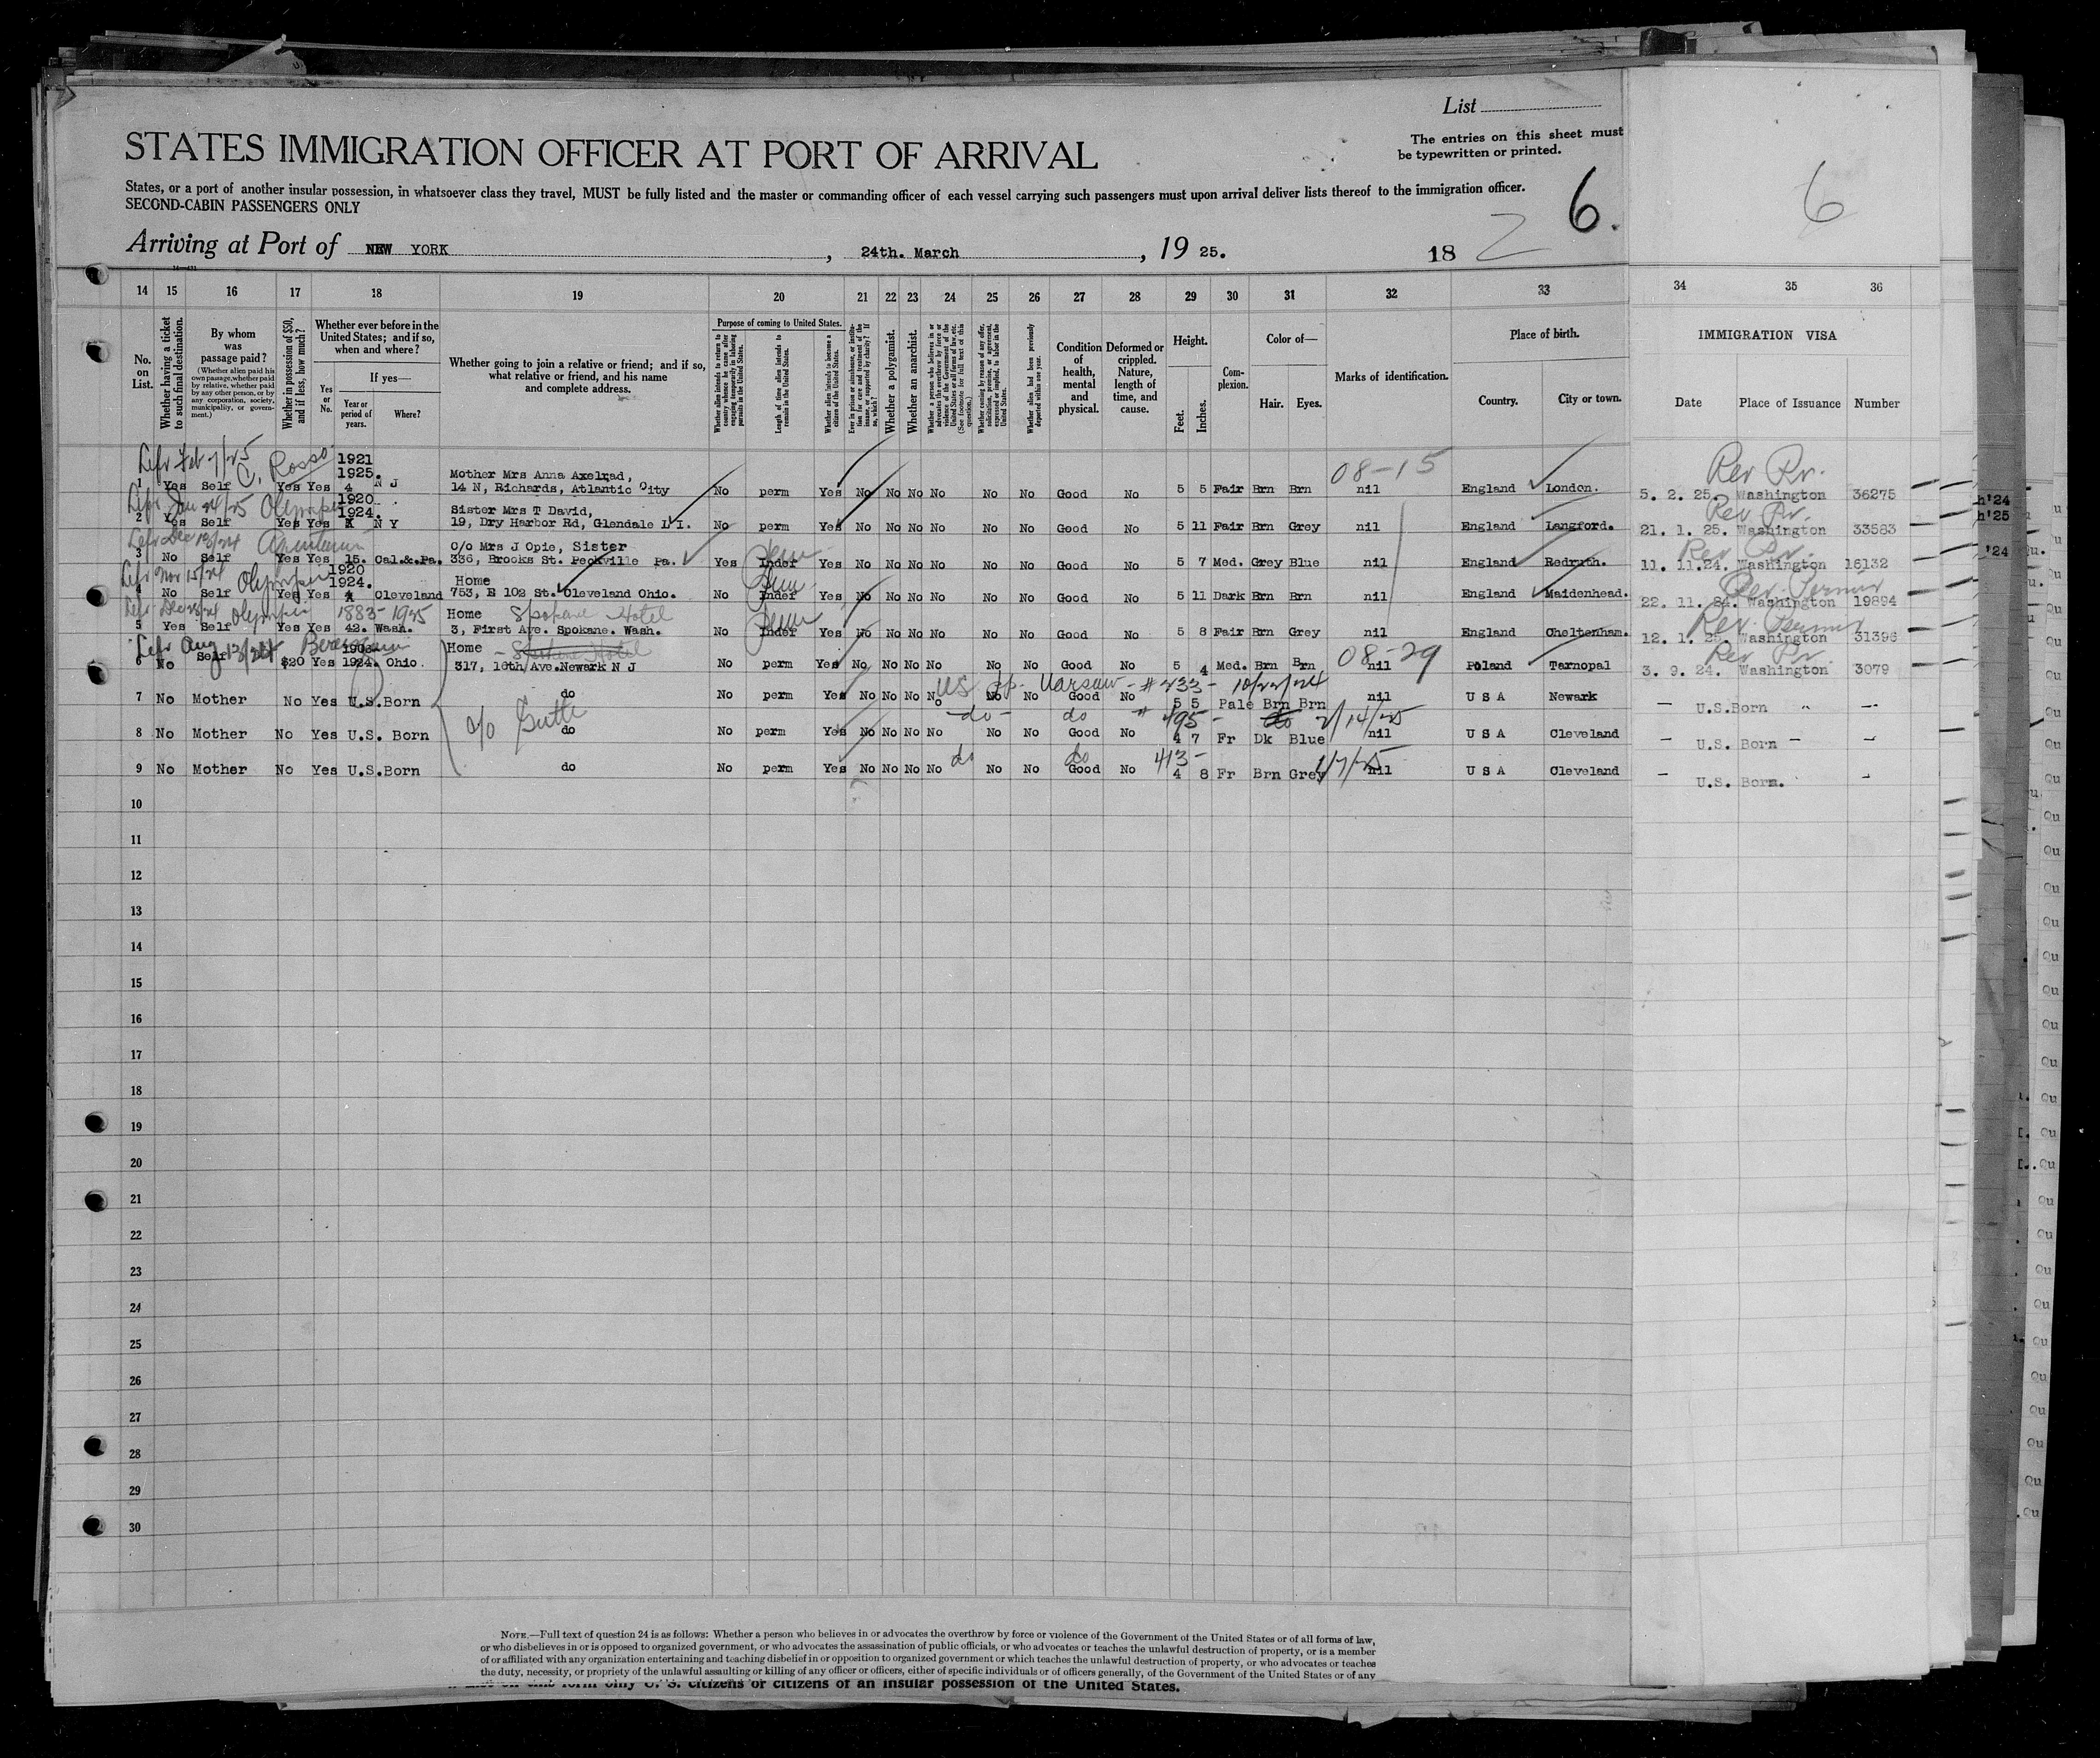 List
The entries on this sheet must
be typewritten or printed.
STATES IMMIGRATION OFFICER AT PORT OF ARRIVAL
States, or a port of another insular possession, in whatsoever class they travel, MUST be fully listed and the master or commanding officer of each vessel carrying such passengers must upon arrival deliver lists thereof to the immigration officer.
SECOND-CABIN PASSENGERS ONLY
6.
6
Arriving at Port of NEW YORK, 24th. March, 19 25. 18 2
14 15 16 17 18 19 20 21 22 23 24 25 26 27 28 29 30 31 32 33 34 35 36
No. on List.
Whether having a ticket to such final destination.
By whom was passage paid?
(Whether alien paid his own passage, whether paid by relative, whether paid by any other person, or by any corporation, society, municipality, or government.)
Whether in possession of $50, and if less, how much?
Whether ever before in the United States; and if so, when and where?
Yes or No.
If yes—
Year or period of years.
Where?
Whether going to join a relative or friend; and if so, what relative or friend, and his name and complete address.
Purpose of coming to United States.
Whether alien intends to return to country whence he came after engaging temporarily in laboring pursuits in the United States.
Length of time alien intends to remain in the United States.
Whether alien intends to become a citizen of the United States.
Whether a polygamist.
Whether an anarchist.
Condition of health, mental and physical.
Deformed or crippled. Nature, length of time, and cause.
Height.
Feet.
Inches.
Complexion.
Color of—
Hair.
Eyes.
Marks of identification.
Place of birth.
Country.
City or town.
IMMIGRATION VISA
Date
Place of Issuance
Number
1921
1925.
1 Yes Self Yes Yes 4 N J Mother Mrs Anna Axelrad,
14 N, Richards, Atlantic City No perm Yes No No No No No No Good No 5 5 Fair Brn Brn 08-15 nil England London. 5. 2. 25. Washington 36275
1920
1924.
2 Yes Self Olympic Yes Yes N Y Sister Mrs T David,
19, Dry Harbor Rd, Glendale L I. No perm Yes No No No No No No Good No 5 11 Fair Brn Grey nil England Langford. 21. 1. 25. Washington 33583
3 No Self Yes Yes 15. Cal.&.Pa. C/o Mrs J Opie, Sister
336, Brooks St. Peckville Pa. Yes Indef Yes No No No No No No Good No 5 7 Med. Grey Blue nil England Redruth. 11. 11.24. Washington 16132
1920
1924.
4 No Self Olympic Yes Yes Cleveland Home
753, E 102 St. Cleveland Ohio. No Indef Yes No No No No No No Good No 5 11 Dark Brn Brn nil England Maidenhead. 22. 11. 24. Washington 19894
1883-1925
5 Yes Self Olympic Yes Yes 42. Wash. Home Spokane Hotel
3, First Ave. Spokane. Wash. No Indef Yes No No No No No No Good No 5 8 Fair Brn Grey nil England Cheltenham. 12. 1. 25. Washington 31396
6 No Self $20 Yes 1924. Ohio. Home
317, 16th Ave. Newark N J No perm Yes No No No No No No Good No 5 4 Med. Brn Brn 08-29 nil Poland Tarnopal 3. 9. 24. Washington 3079
US pp. Warsaw - # 233 - 10/22/24
7 No Mother No Yes U.S.Born do No perm Yes No No No No No No Good No 5 5 Pale Brn Brn nil U S A Newark — U.S.Born " —
-do- do # 495 - 2/14/25
8 No Mother No Yes U.S. Born do No perm Yes No No No No No No Good No 4 7 Fr Dk Blue nil U S A Cleveland — U.S. Born — —
do do 413 - 1/7/25
9 No Mother No Yes U.S.Born do No perm Yes No No No No No No Good No 4 8 Fr Brn Grey nil U S A Cleveland — U.S. Born. —
10
11
12
13
14
15
16
17
18
19
20
21
22
23
24
25
26
27
28
29
30
NOTE.—Full text of question 24 is as follows: Whether a person who believes in or advocates the overthrow by force or violence of the Government of the United States or of all forms of law,
or who disbelieves in or is opposed to organized government, or who advocates the assassination of public officials, or who advocates or teaches the unlawful destruction of property, or is a member
of or affiliated with any organization entertaining and teaching disbelief in or opposition to organized government or which teaches the unlawful destruction of property, or who advocates or teaches
the duty, necessity, or propriety of the unlawful assaulting or killing of any officer or officers, either of specific individuals or of officers generally, of the Government of the United States or of any
form only U. S. citizens or citizens of an insular possession of the United States.